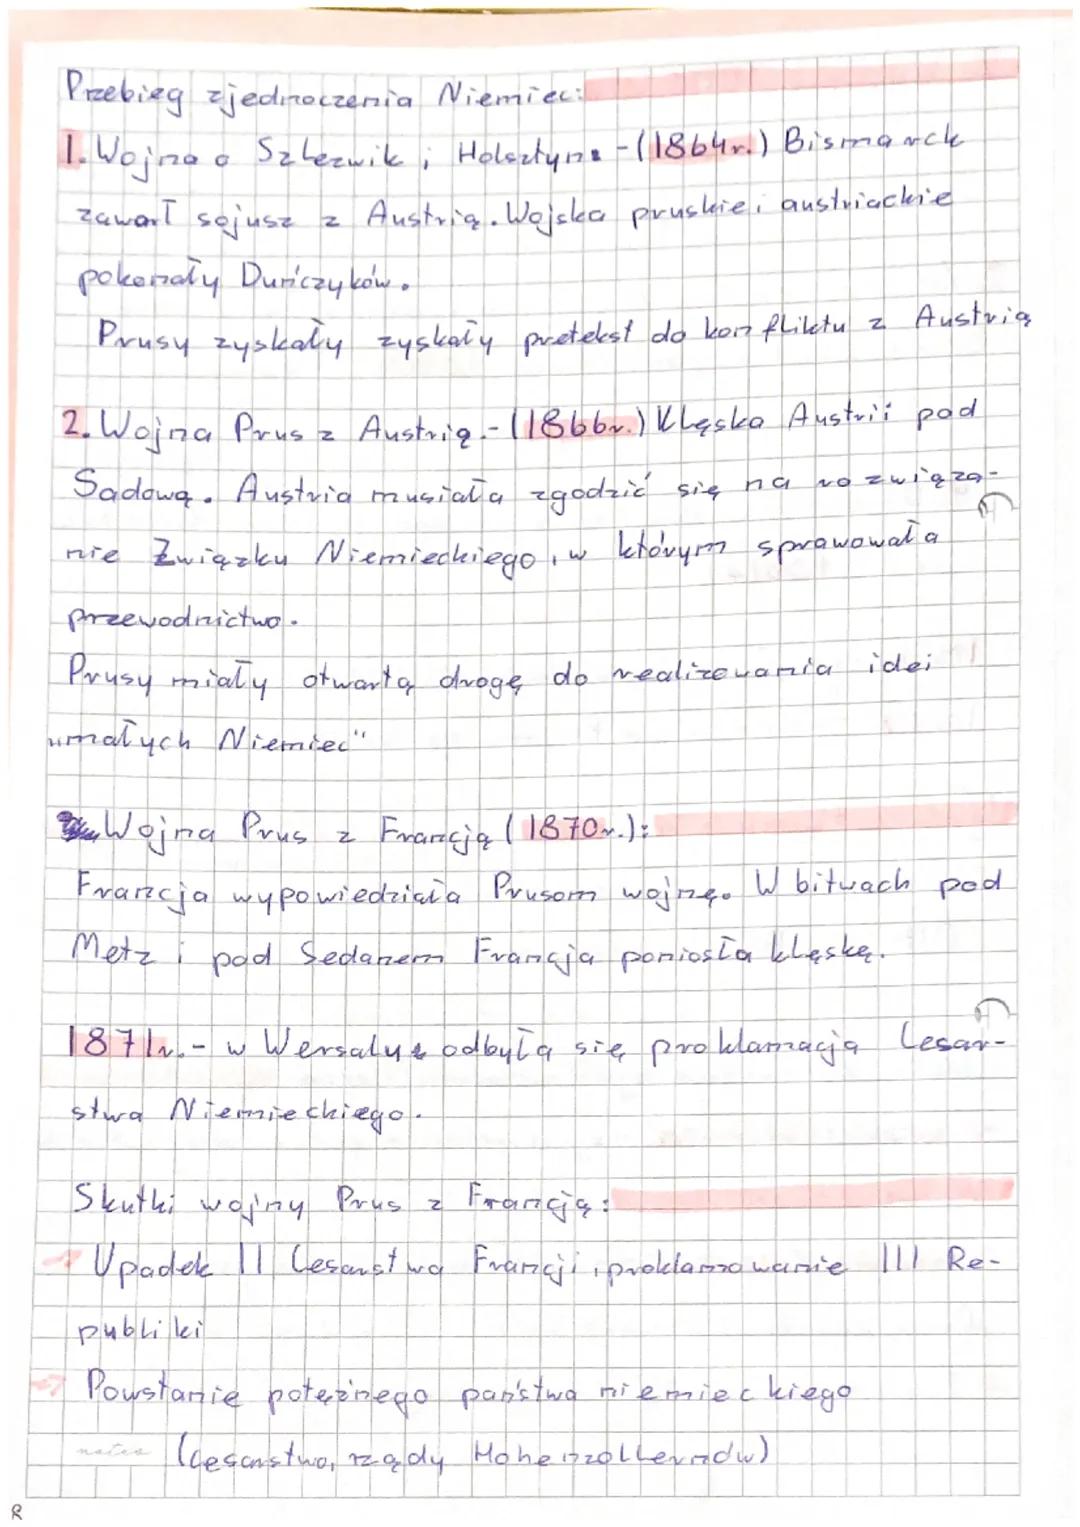 Przebieg zjednoczenia Niemiec:
1. Wojna o Szlezwik i Holsztyn - (1864r.) Bismarck
zawarł sojusz z Austrią. Wojska pruskie i austriackie
pokonały Duńczyków.
Prusy zyskały zyskały pretekst do konfliktu z Austrią
2. Wojna Prus z Austrią. - (1866r.) Klęska Austrii pod
Sadową. Austria musiała zgodzić się na rozwiąza-
nie Związku Niemieckiego, w którym sprawowała
przewodnictwo.
Prusy miały otwartą drogę do realizowania idei
"małych Niemiec"
Wojna Prus z Francją (1870r.):
Francja wypowiedziała Prusom wojnę. W bitwach pod
Metz i pod Sedanem Francja poniosła klęskę.
1871r. - w Wersalu odbyła się proklamacja Cesar-
stwa Niemieckiego.
Skutki wojny Prus z Francją:
→ Upadek II Cesarstwa Francji, proklamowanie III Re-
publiki
→ Powstanie potężnego państwa niemieckiego
notes (cesarstwo, rządy Hohenzollernów)